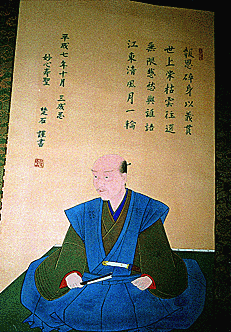 報恩碎身以義貫
世上榮枯雲往還
無限愁愁與誰語
江東清風月一輪
平成七年十月 三成忌
妙心寿聖
謹書